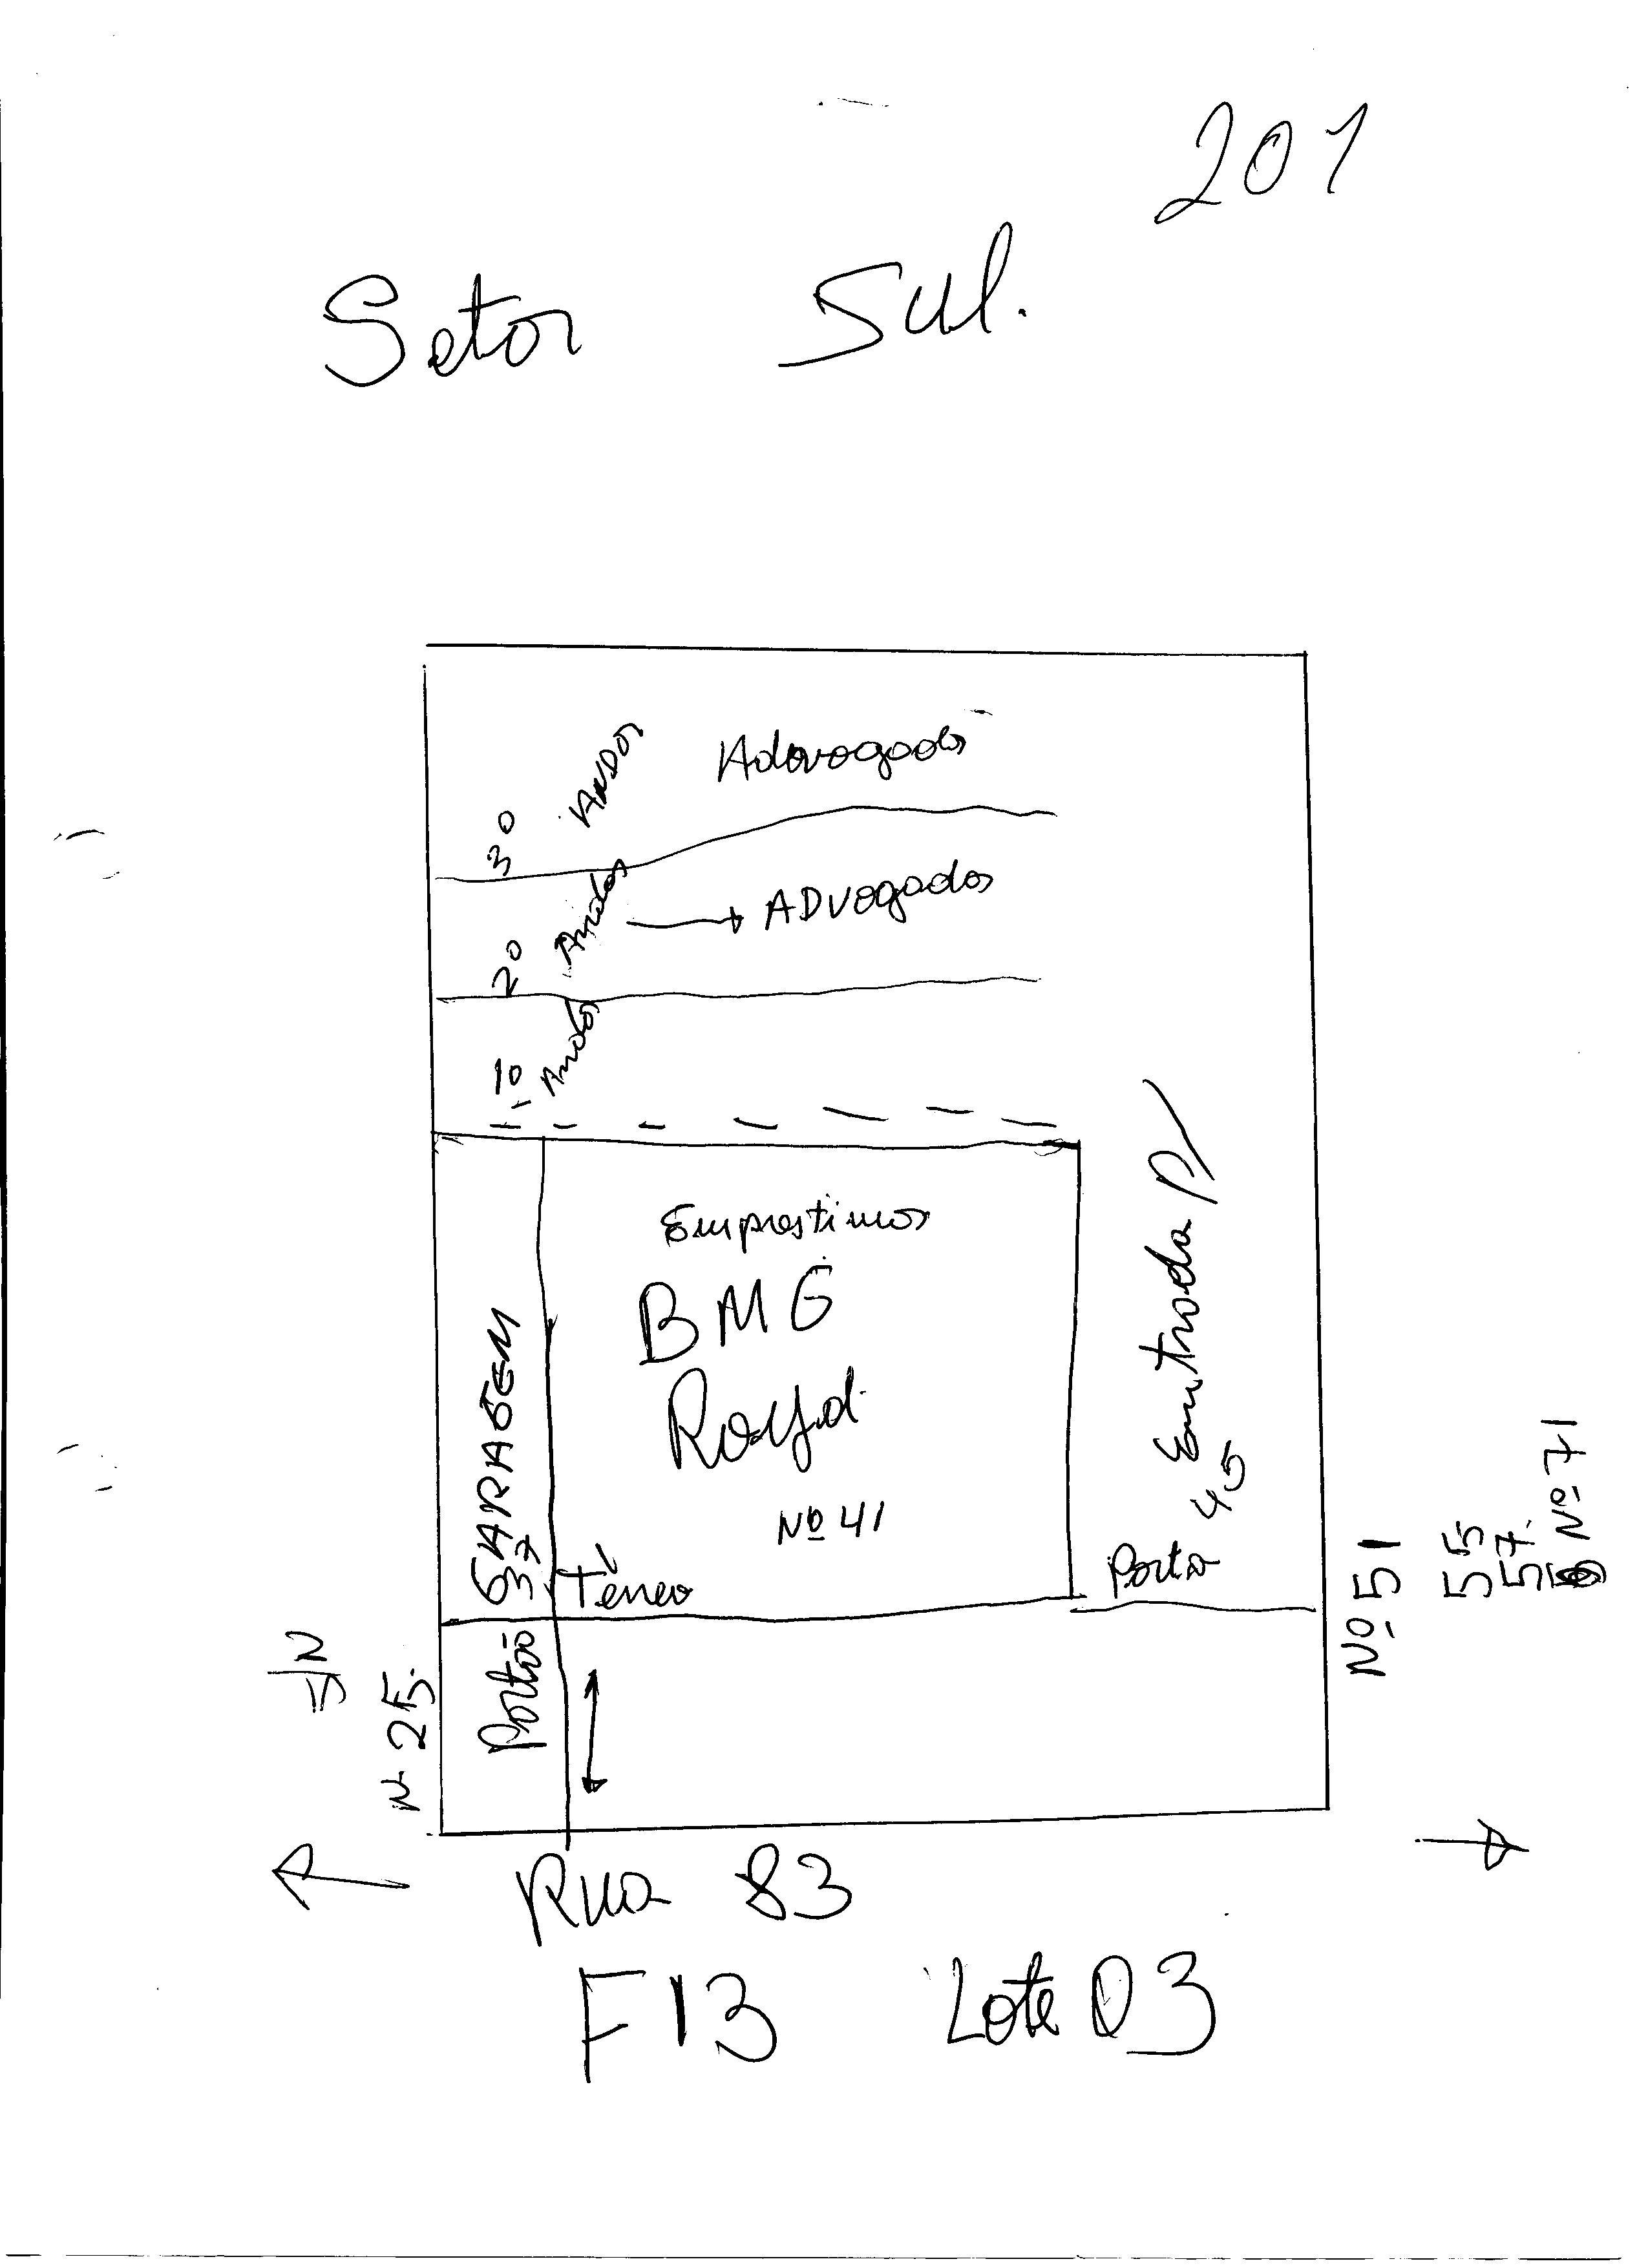 201
Setor Sul.
30 ANDAR Advogados
20 Andar ADVogados
10 Andar
Emprestimos
BMG
Royal
Nº 41
Térreo
GARAGEM
37
Portão
Entrada P/
45
Porta
S/N
N 25.
Nº 51
55
57.
Nº 71
Rua 83
F13 Lote 03